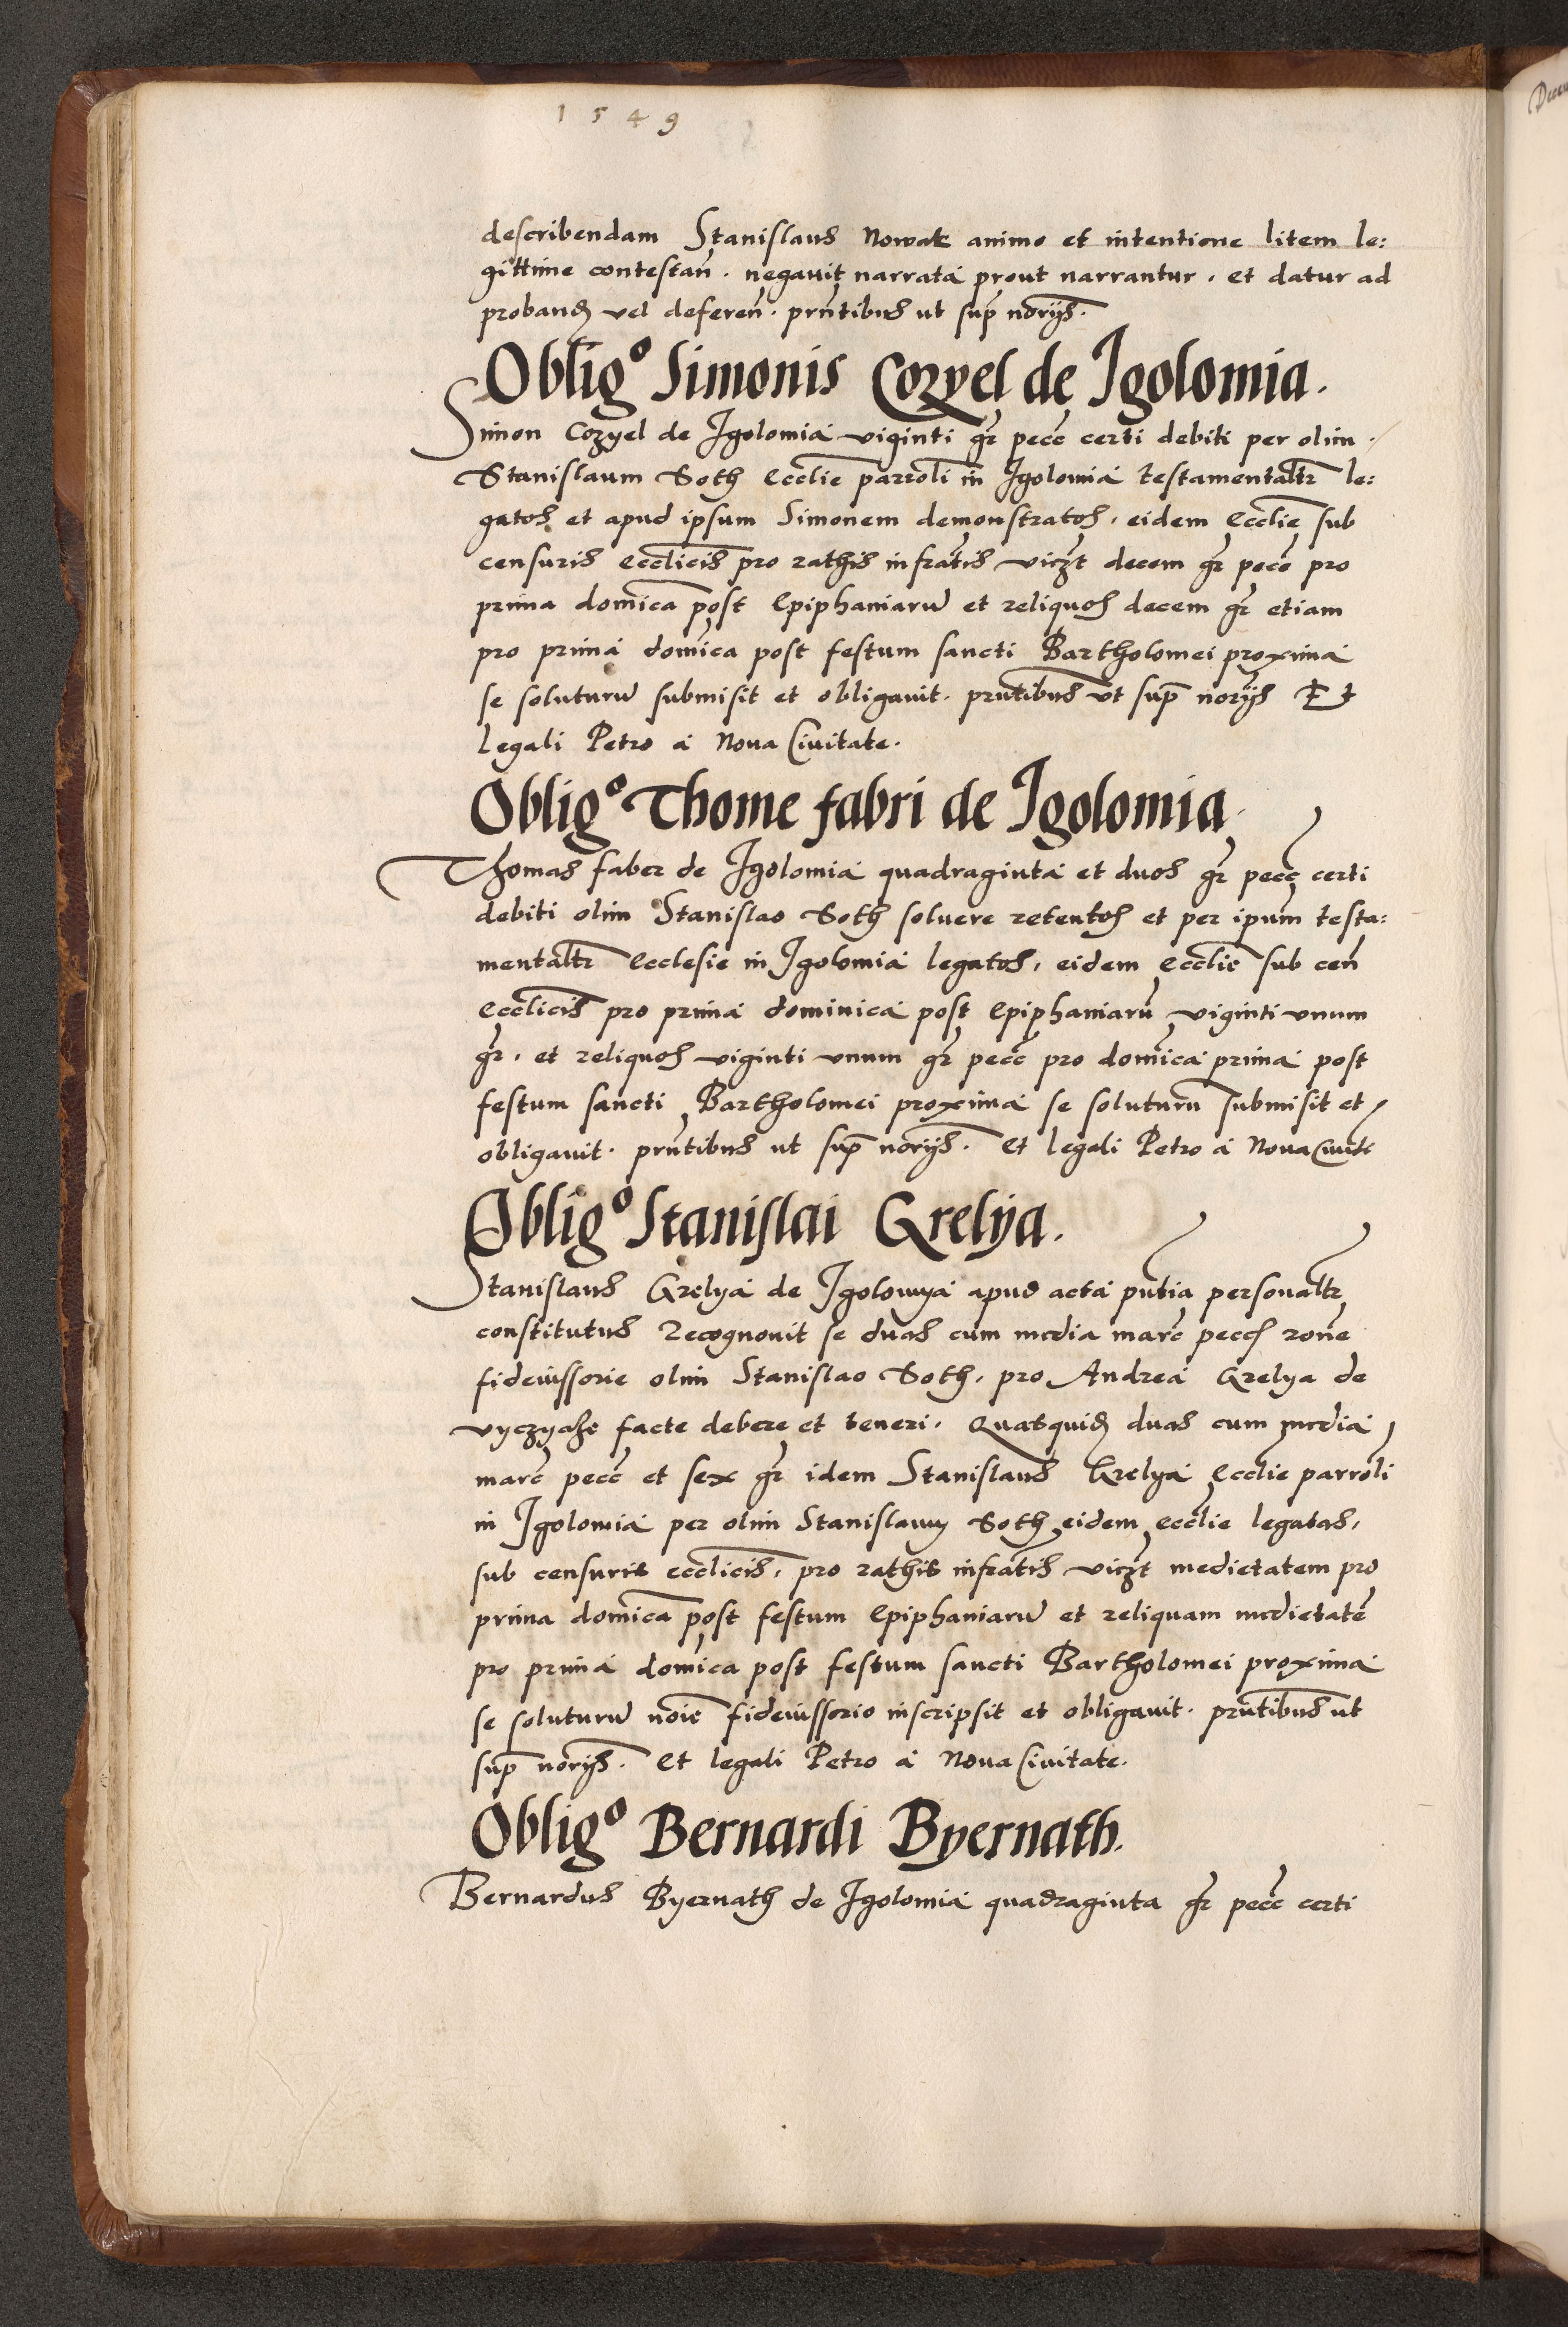 1549
describendam Stanislaus Nowak animo et intentione litem le:
gittime contestan̄. negauit narrata prout narrantur. et datur ad
proband vel deferen̄. prn̄tibus ut sup̄ norijs.
Oblig⁰ Simonis Cozyel de Igolomia.
Simon Cozyel de Igolomia viginti gr̄ pecc̄ certi debiti per olim.
Stanislaum Soth eccl̄ie parrol̄i in Igolomia testamentalr̄ le:
gatos et apud ipsum Simonem demonstratos. eidem eccl̄ie sub
censuris eccl̄icis pro rathis infratis viczt decem gr̄ pecc̄ pro
prima domīca post Epiphaniarū et reliquos decem gr̄ etiam
pro prima domīca post festum sancti Bartholomei proxima
se soluturū submisit et obligauit. prn̄tibus ut sup̄ norijs Et
legali Petro a Noua Ciuitate.
Oblig⁰ Thome fabri de Igolomia.
Thomas faber de Igolomia quadraginta et duos gr̄ pecc̄ certi
debiti olim Stanislao Soth soluere retentos et per ipum̄ testa:
mentalr̄ Ecclesie in Igolomia legatos, eidem eccl̄ie sub cen̄
eccl̄icis pro prima dominica post Epiphaniarū viginti vnum
gr̄. et reliquos viginti vnum gr̄ pecc̄ pro domīca prima post
festum sancti Bartholomei proxima se soluturū submisit et
obligauit. prn̄tibus ut sup̄ norijs. Et legali Petro a Noua Ciuitē
Oblig⁰ Stanislai Grelya.
Stanislaus Grelya de Igolomya apud acta pn̄tia personalr̄
constitutus Recognouit se duas cum media marc̄ pecc̄ rone̅
fideiussorie olim Stanislao Soth, pro Andrea Grelya de
vyczyaze facte debere et teneri. Quasquid duas cum media
marc̄ pecc̄ et sex gr̄ idem Stanislaus Grelya Eccl̄ie parrol̄i
in Igolomia per olim Stanislaum Soth eidem eccl̄ie legatas,
sub censuris eccl̄icis, pro rathis infratis viczt medietatem pro
prima domīca post festum Epiphaniarū et reliquam medietatē
pro prima domīca post festum sancti Bartholomei proxima
se soluturū noiē fideiussorio inscripsit et obligauit. prn̄tibus ut
sup̄ norijs. Et legali Petro a Noua Ciuitate.
Oblig⁰ Bernardi Byernath.
Bernardus Byernath de Igolomia quadraginta gr̄ pecc̄ certi